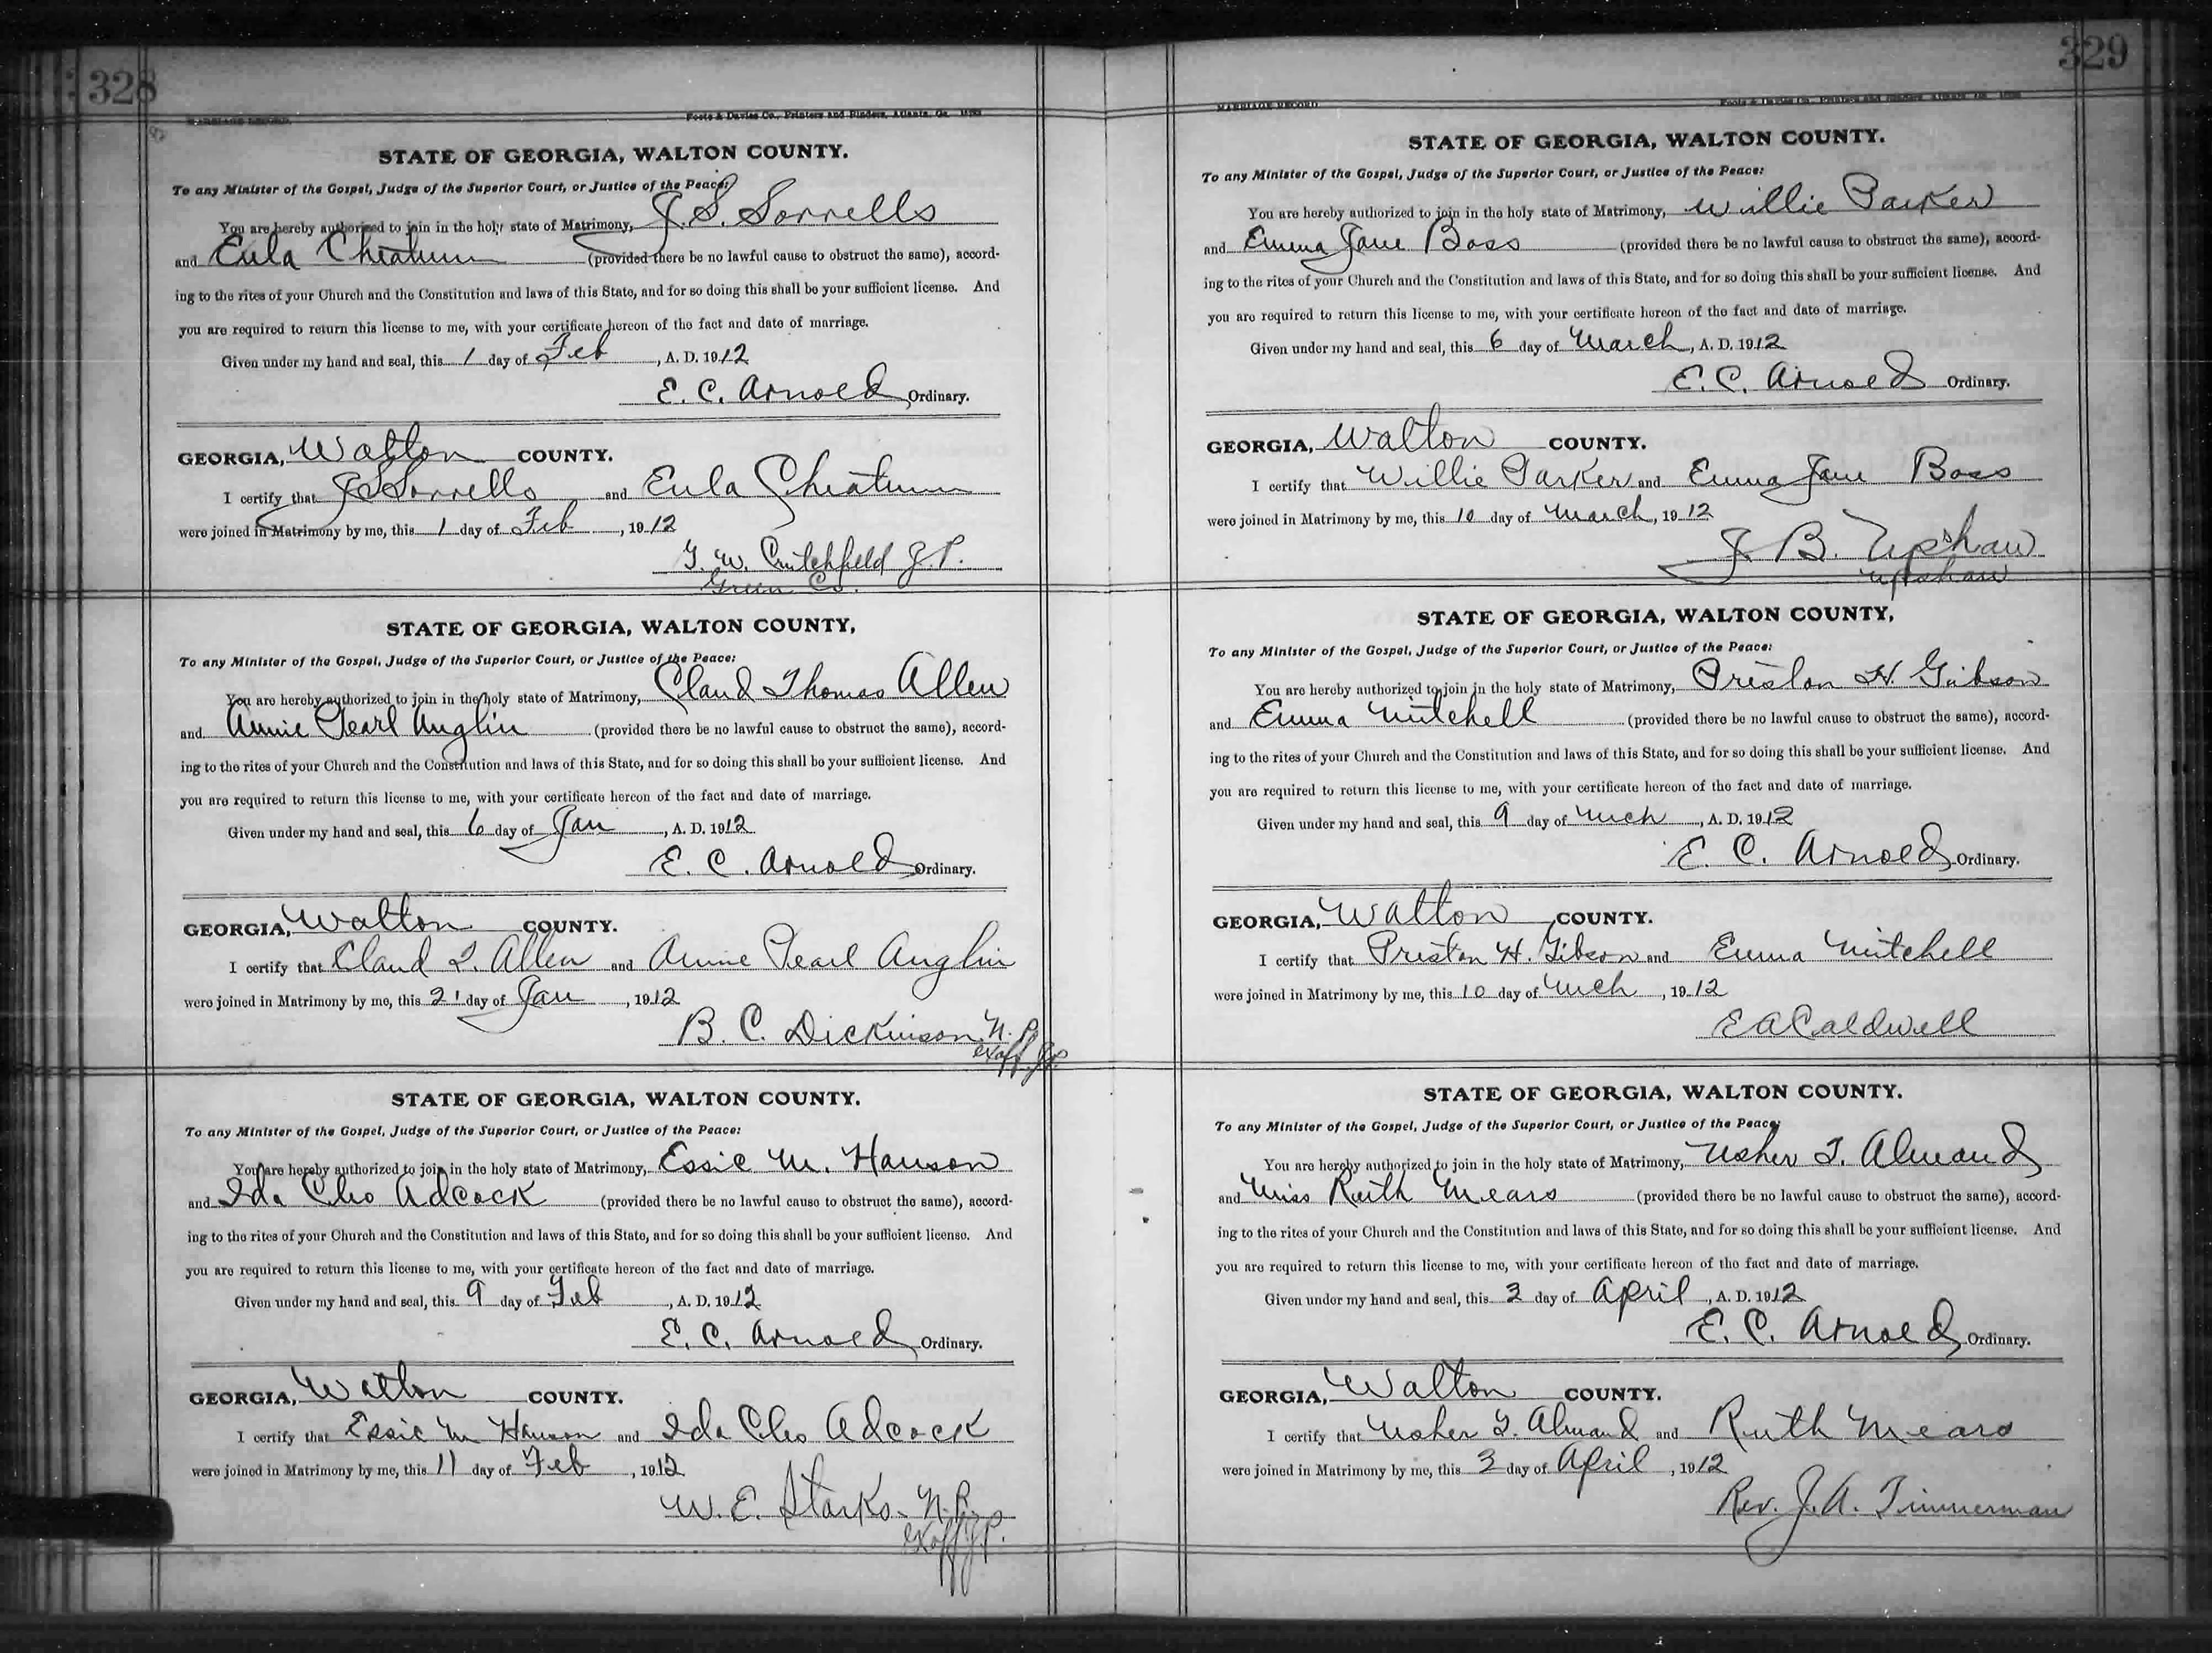 328
MARRIAGE RECORD.
Foote & Davies Co., Printers and Binders, Atlanta, Ga.
STATE OF GEORGIA, WALTON COUNTY.
To any Minister of the Gospel, Judge of the Superior Court, or Justice of the Peace:
You are hereby authorized to join in the holy state of Matrimony, J. S. Sorrells
and Eula Cheatum (provided there be no lawful cause to obstruct the same), accord-
ing to the rites of your Church and the Constitution and laws of this State, and for so doing this shall be your sufficient license. And
you are required to return this license to me, with your certificate hereon of the fact and date of marriage.
Given under my hand and seal, this 1 day of Feb, A. D. 1912
E. C. Arnold Ordinary.
GEORGIA, Walton COUNTY.
I certify that J S Sorrells and Eula Cheatum
were joined in Matrimony by me, this 1 day of Feb, 1912
T. W. Crutchfield J. P.
Green Co.
STATE OF GEORGIA, WALTON COUNTY,
To any Minister of the Gospel, Judge of the Superior Court, or Justice of the Peace:
You are hereby authorized to join in the holy state of Matrimony, Claud Thomas Allen
and Annie Pearl Anglin (provided there be no lawful cause to obstruct the same), accord-
ing to the rites of your Church and the Constitution and laws of this State, and for so doing this shall be your sufficient license. And
you are required to return this license to me, with your certificate hereon of the fact and date of marriage.
Given under my hand and seal, this 6 day of Jan, A. D. 1912
E. C. Arnold Ordinary.
GEORGIA, Walton COUNTY.
I certify that Claud T. Allen and Annie Pearl Anglin
were joined in Matrimony by me, this 21 day of Jan, 1912
B. C. Dickinson N. P.
exoff J.P.
STATE OF GEORGIA, WALTON COUNTY.
To any Minister of the Gospel, Judge of the Superior Court, or Justice of the Peace:
You are hereby authorized to join in the holy state of Matrimony, Essie M. Hanson
and Ida Cleo Adcock (provided there be no lawful cause to obstruct the same), accord-
ing to the rites of your Church and the Constitution and laws of this State, and for so doing this shall be your sufficient license. And
you are required to return this license to me, with your certificate hereon of the fact and date of marriage.
Given under my hand and seal, this 9 day of Feb, A. D. 1912
E. C. Arnold Ordinary.
GEORGIA, Walton COUNTY.
I certify that Essie M Hanson and Ida Cleo Adcock
were joined in Matrimony by me, this 11 day of Feb, 1912
W. E. Starks N. P.
exoff J.P.
329
MARRIAGE RECORD
Foote & Davies Co., Printers and Binders, Atlanta, Ga.
STATE OF GEORGIA, WALTON COUNTY.
To any Minister of the Gospel, Judge of the Superior Court, or Justice of the Peace:
You are hereby authorized to join in the holy state of Matrimony, Willie Parker
and Emma Jane Boss (provided there be no lawful cause to obstruct the same), accord-
ing to the rites of your Church and the Constitution and laws of this State, and for so doing this shall be your sufficient license. And
you are required to return this license to me, with your certificate hereon of the fact and date of marriage.
Given under my hand and seal, this 6 day of March, A. D. 1912
E. C. Arnold Ordinary.
GEORGIA, Walton COUNTY.
I certify that Willie Parker and Emma Jane Boss
were joined in Matrimony by me, this 10 day of March, 1912
J. B. Upshaw
upshaw
STATE OF GEORGIA, WALTON COUNTY,
To any Minister of the Gospel, Judge of the Superior Court, or Justice of the Peace:
You are hereby authorized to join in the holy state of Matrimony, Preston H. Gibson
and Emma Mitchell (provided there be no lawful cause to obstruct the same), accord-
ing to the rites of your Church and the Constitution and laws of this State, and for so doing this shall be your sufficient license. And
you are required to return this license to me, with your certificate hereon of the fact and date of marriage.
Given under my hand and seal, this 9 day of Mch, A. D. 1912
E. C. Arnold Ordinary.
GEORGIA, Walton COUNTY.
I certify that Preston H. Gibson and Emma Mitchell
were joined in Matrimony by me, this 10 day of Mch, 1912
E A Caldwell
STATE OF GEORGIA, WALTON COUNTY.
To any Minister of the Gospel, Judge of the Superior Court, or Justice of the Peace:
You are hereby authorized to join in the holy state of Matrimony, Usher T. Almand
and Miss Ruth Mears (provided there be no lawful cause to obstruct the same), accord-
ing to the rites of your Church and the Constitution and laws of this State, and for so doing this shall be your sufficient license. And
you are required to return this license to me, with your certificate hereon of the fact and date of marriage.
Given under my hand and seal, this 3 day of April, A. D. 1912
E. C. Arnold Ordinary.
GEORGIA, Walton COUNTY.
I certify that Usher T. Almand and Ruth Mears
were joined in Matrimony by me, this 3 day of April, 1912
Rev. J. A. Timmerman